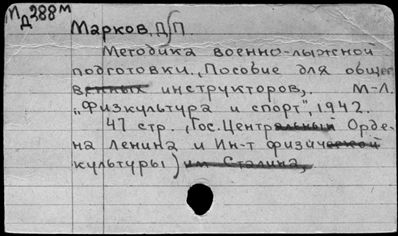 И
Д388м
Марков, Д.П.
Методика военно-лыжной
подготовки. „Пособие для общев
инструкторов,. М-Л.
„Физкультура и спорт", 1942.
47 стр. „(Гос. Центральный Орде-
на Ленина и Ин-т физической
культуры) им Сталина,